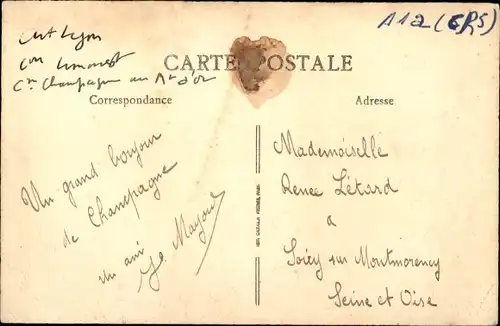 art Lyon
con Limonest
Cne Champagne au Mt d'or
11a (GRS)
CARTE POSTALE
Correspondance
Adresse
Un grand bonjour
de Champagne
un ami
Mademoiselle
Renee Létard
a
Soisy sur Montmorency
Seine et Oise